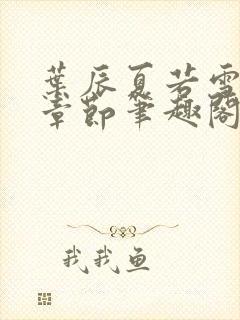 葉辰夏若雪
章節筆趣閣
我我魚